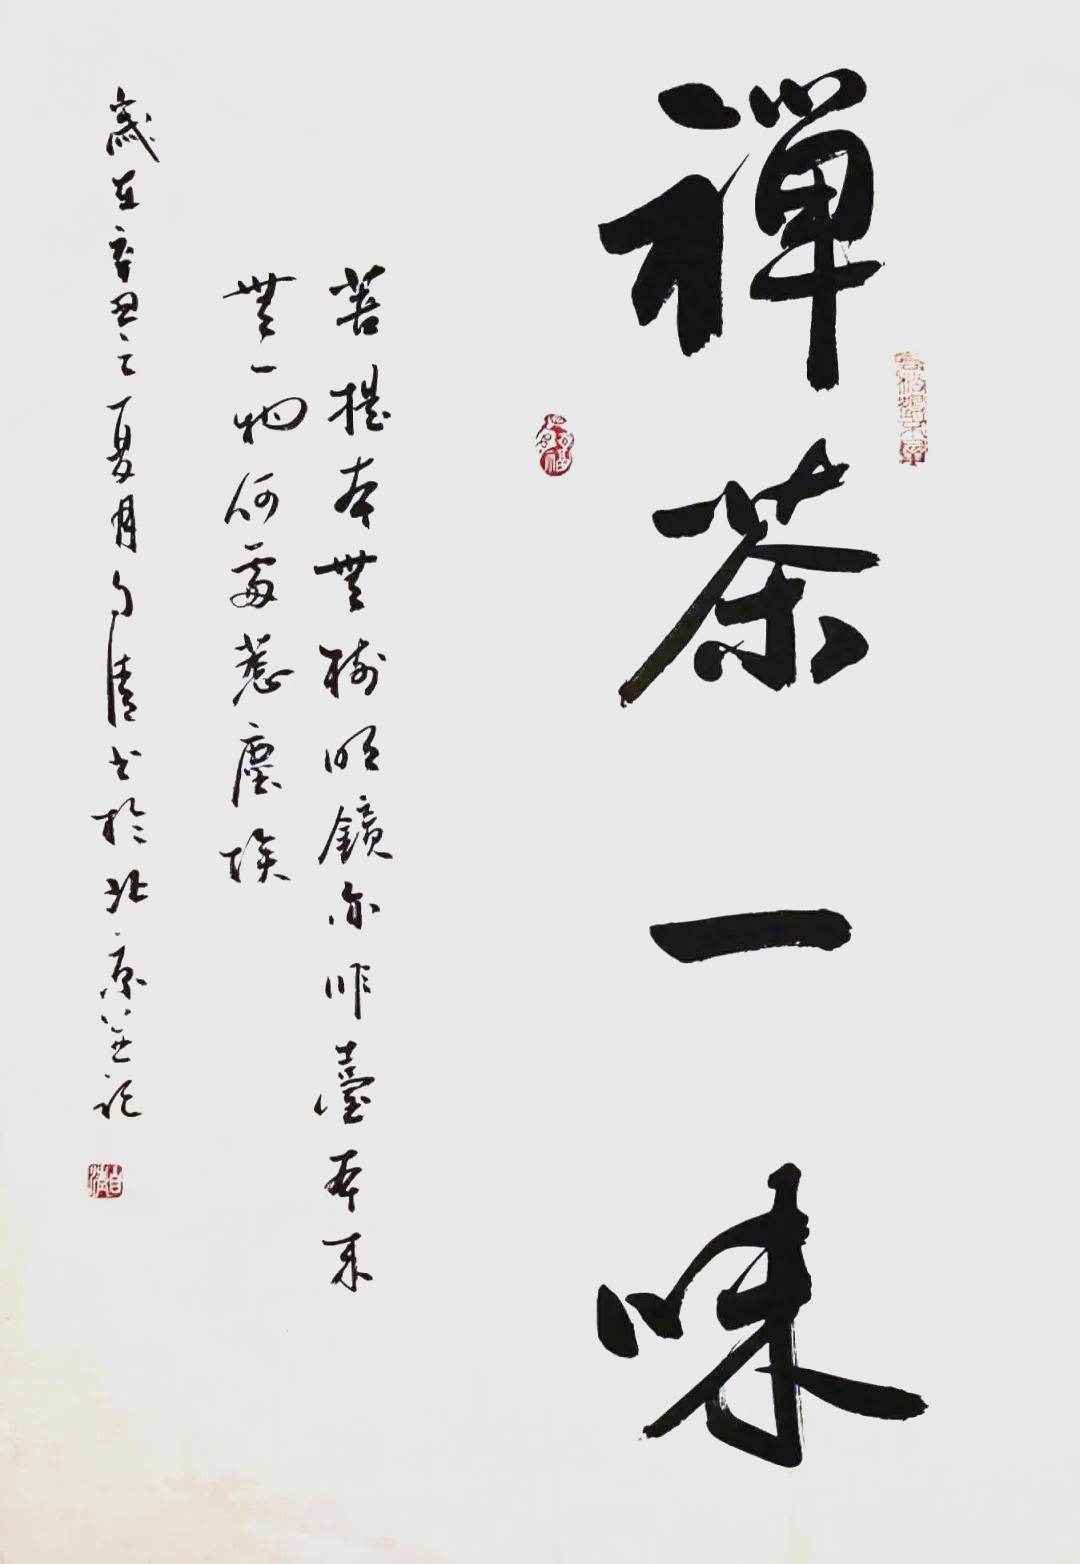 禪茶一味
菩提本無樹明鏡亦非臺本來
無一物何處惹塵埃
歲在辛丑之夏月自清書於北京並記
自清